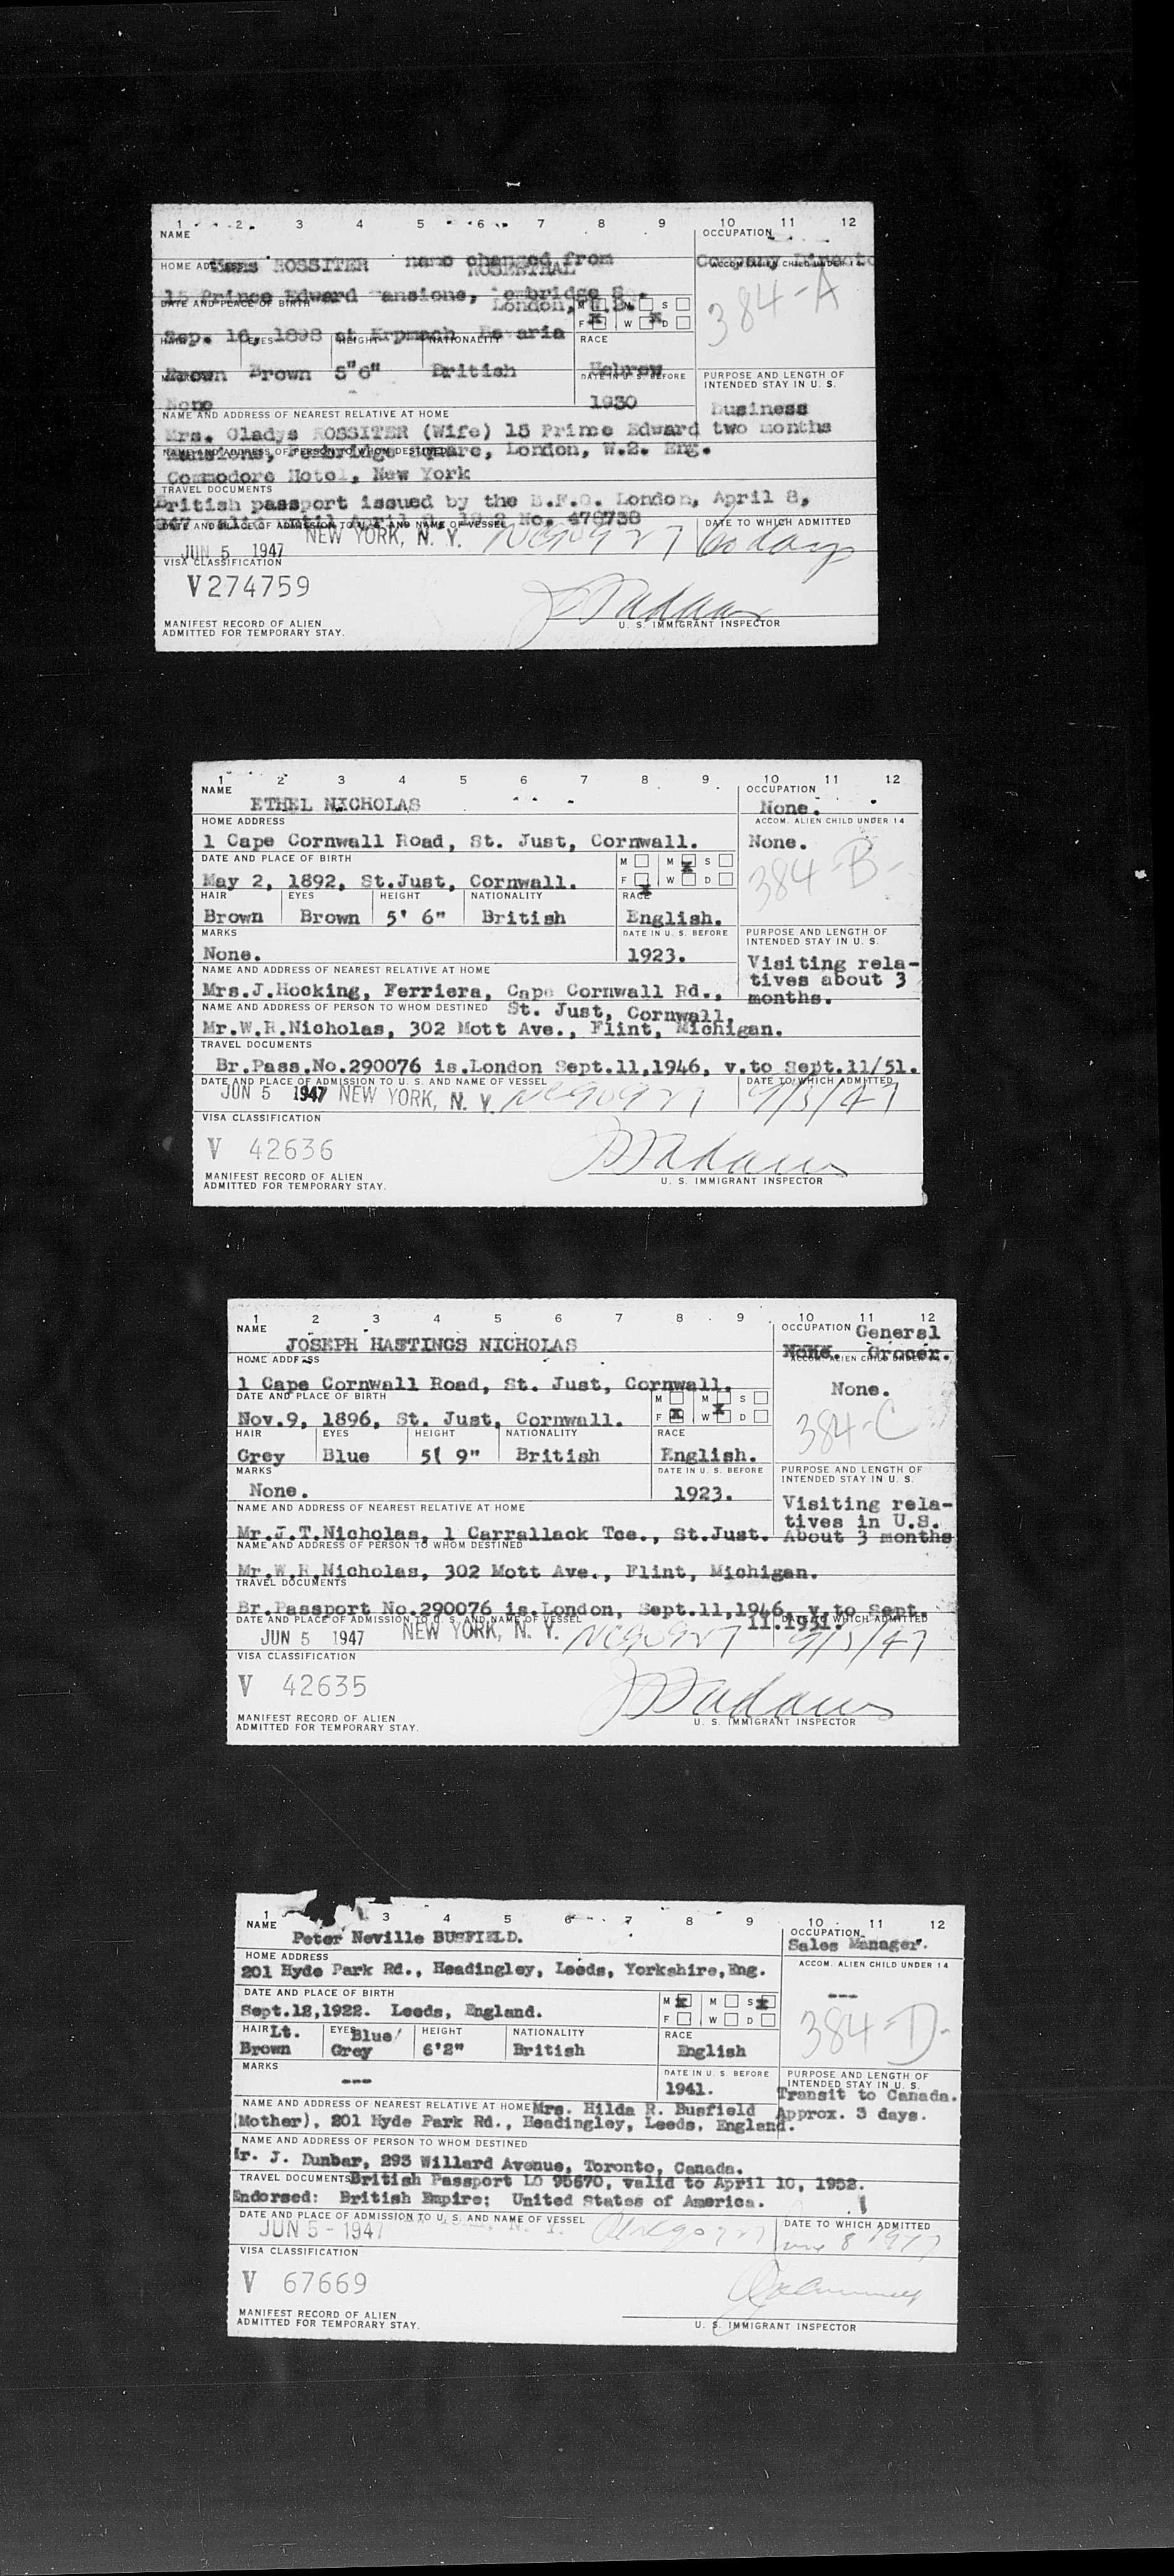 1 2 3 4 5 6 7 8 9 10 11 12
NAME
OCCUPATION
ROSSITER name changed from
ROSENTHAL
HOME
Company
15 Prince Edward Mansions,
London,
DATE AND PLACE OF BIRTH
M M S
F W D
384-A
Sep. 16, 1898 at Bavaria
HAIR EYES HEIGHT NATIONALITY RACE
Brown Brown 5"6" British Hebrew
DATE IN U. S. BEFORE
PURPOSE AND LENGTH OF
INTENDED STAY IN U. S.
None 1930 Business
NAME AND ADDRESS OF NEAREST RELATIVE AT HOME
Mrs. Gladys ROSSITER (Wife) 15 Prince Edward two months
Mansions, Square, London, W.2. Eng.
NAME AND ADDRESS OF PERSON TO WHOM DESTINED
Commodore Hotel, New York
TRAVEL DOCUMENTS
British passport issued by the B.F.O. London, April 8,
No. 478738
DATE AND PLACE OF ADMISSION TO U. S. AND NAME OF VESSEL
DATE TO WHICH ADMITTED
JUN 5 1947 NEW YORK, N. Y. NC90927 60 days
VISA CLASSIFICATION
V274759
MANIFEST RECORD OF ALIEN
ADMITTED FOR TEMPORARY STAY.
U. S. IMMIGRANT INSPECTOR
1 2 3 4 5 6 7 8 9 10 11 12
NAME
OCCUPATION
ETHEL NICHOLAS None.
HOME ADDRESS
ACCOM. ALIEN CHILD UNDER 14
1 Cape Cornwall Road, St. Just, Cornwall. None.
DATE AND PLACE OF BIRTH
M M X S
F X W D
384-B-
May 2, 1892, St.Just, Cornwall.
HAIR EYES HEIGHT NATIONALITY RACE
Brown Brown 5' 6" British English.
MARKS
DATE IN U. S. BEFORE
PURPOSE AND LENGTH OF
INTENDED STAY IN U. S.
None. 1923.
Visiting rela-
tives about 3
months.
NAME AND ADDRESS OF NEAREST RELATIVE AT HOME
Mrs.J.Hocking, Ferriera, Cape Cornwall Rd.,
NAME AND ADDRESS OF PERSON TO WHOM DESTINED St. Just, Cornwall.
Mr.W.R.Nicholas, 302 Mott Ave., Flint, Michigan.
TRAVEL DOCUMENTS
Br.Pass.No.290076 is.London Sept.11,1946, v.to Sept.11/51.
DATE AND PLACE OF ADMISSION TO U. S. AND NAME OF VESSEL
DATE TO WHICH ADMITTED
JUN 5 1947 NEW YORK, N. Y. NC90927 9/5/47
VISA CLASSIFICATION
V 42636
MANIFEST RECORD OF ALIEN
ADMITTED FOR TEMPORARY STAY.
U. S. IMMIGRANT INSPECTOR
1 2 3 4 5 6 7 8 9 10 11 12
NAME
OCCUPATION General
JOSEPH HASTINGS NICHOLAS None. Grocer.
HOME ADDRESS
ACCOM. ALIEN CHILD UNDER 14
1 Cape Cornwall Road, St. Just, Cornwall. None.
DATE AND PLACE OF BIRTH
M M S
F X W X D
384-C
Nov.9, 1896, St. Just, Cornwall.
HAIR EYES HEIGHT NATIONALITY RACE
Grey Blue 5( 9" British English.
MARKS
DATE IN U. S. BEFORE
PURPOSE AND LENGTH OF
INTENDED STAY IN U. S.
None. 1923.
Visiting rela-
tives in U.S.
About 3 months
NAME AND ADDRESS OF NEAREST RELATIVE AT HOME
Mr.J.T.Nicholas, 1 Carrallack Tce., St.Just.
NAME AND ADDRESS OF PERSON TO WHOM DESTINED
Mr.W.R.Nicholas, 302 Mott Ave., Flint, Michigan.
TRAVEL DOCUMENTS
Br.Passport No.290076 is.London, Sept.11,1946, v.to Sept.
11.1951.
DATE AND PLACE OF ADMISSION TO U. S. AND NAME OF VESSEL
DATE TO WHICH ADMITTED
JUN 5 1947 NEW YORK, N. Y. NC90927 9/5/47
VISA CLASSIFICATION
V 42635
MANIFEST RECORD OF ALIEN
ADMITTED FOR TEMPORARY STAY.
U. S. IMMIGRANT INSPECTOR
1 3 4 5 6 7 8 9 10 11 12
NAME
OCCUPATION
Peter Neville BUSFIELD. Sales Manager.
HOME ADDRESS
ACCOM. ALIEN CHILD UNDER 14
201 Hyde Park Rd., Headingley, Leeds, Yorkshire,Eng.
---
DATE AND PLACE OF BIRTH
M X M S X
F W D
384-D-
Sept.12,1922. Leeds, England.
HAIR Lt. EYES Blue/ HEIGHT NATIONALITY RACE
Brown Grey 6'2" British English
MARKS
DATE IN U. S. BEFORE
PURPOSE AND LENGTH OF
INTENDED STAY IN U. S.
--- 1941. Transit to Canada.
Approx. 3 days.
NAME AND ADDRESS OF NEAREST RELATIVE AT HOME Mrs. Hilda R. Busfield
(Mother), 201 Hyde Park Rd., Headingley, Leeds, England.
NAME AND ADDRESS OF PERSON TO WHOM DESTINED
Mr. J. Dunbar, 293 Willard Avenue, Toronto, Canada.
TRAVEL DOCUMENTS British Passport LO 95670, valid to April 10, 1952.
Endorsed: British Empire; United States of America.
DATE AND PLACE OF ADMISSION TO U. S. AND NAME OF VESSEL
DATE TO WHICH ADMITTED
JUN 5 - 1947 N. Y. June 8 1947
VISA CLASSIFICATION
V 67669
MANIFEST RECORD OF ALIEN
ADMITTED FOR TEMPORARY STAY.
U. S. IMMIGRANT INSPECTOR